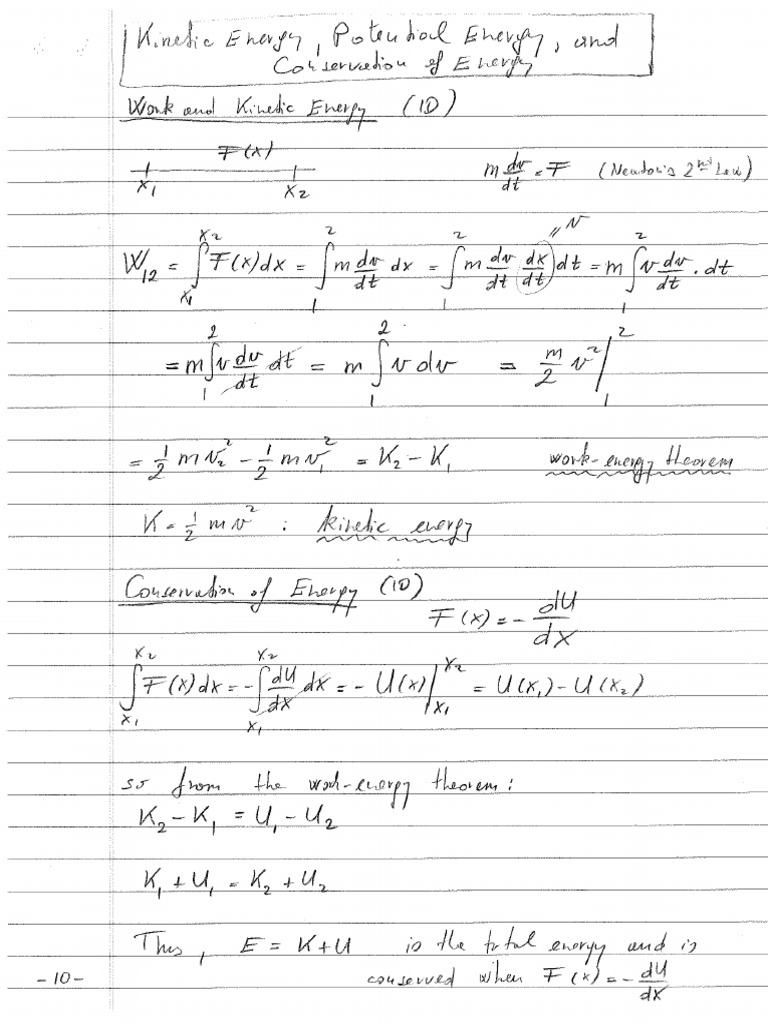 Kinetic Energy, Potential Energy, and
Conservation of Energy
Work and Kinetic Energy (1D)
F(x)
x₁ x₂ m dv/dt = F (Newton's 2nd Law)
W₁₂ = ∫_{x₁}^{x₂} F(x)dx = ∫₁² m dv/dt dx = ∫₁² m dv/dt (dx/dt) dt = m ∫₁² v dv/dt · dt
// v
= m ∫₁² v dv/dt dt = m ∫₁² v dv = m/2 v² |₁²
= 1/2 m v₂² - 1/2 m v₁² = K₂ - K₁ work-energy theorem
K = 1/2 m v² : kinetic energy
Conservation of Energy (1D)
F(x) = - dU/dx
∫_{x₁}^{x₂} F(x)dx = - ∫_{x₁}^{x₂} dU/dx dx = - U(x) |_{x₁}^{x₂} = U(x₁) - U(x₂)
so from the work-energy theorem:
K₂ - K₁ = U₁ - U₂
K₁ + U₁ = K₂ + U₂
Thus, E = K+U is the total energy and is
-10- conserved when F(x) = - dU/dx